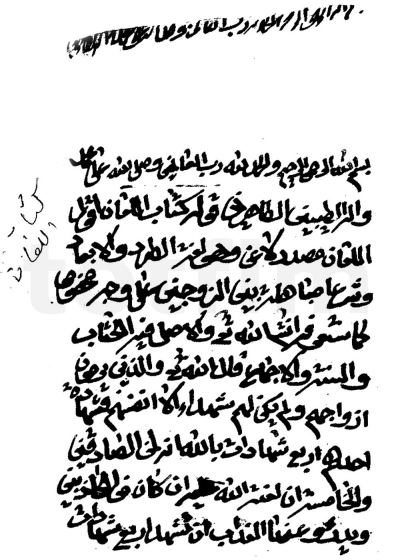 بسم الله الرحمن الرحيم والحمد لله رب العالمين وصلى الله على محمد
واله الطيبين الطاهرين قوله كتاب اللعان اقول
اللعان مصدر لاعن وهو لغة الطرد والابعاد
وشرعا مباهلة بين الزوجين على وجه مخصوص
كما سنى فيه انشا الله تع والاصل فيه الكتاب
والسنة والاجماع قال الله تع والذين يرمون
ازواجهم ولم يكن لهم شهداء الا انفسهم فشهادة
احدهم اربع شهادات بالله انه لمن الصادقين
والخامسة ان لعنة الله عليه ان كان من الكاذبين
ويدرؤ عنها العذاب ان تشهد اربع شهادات
كتاب
اللعان